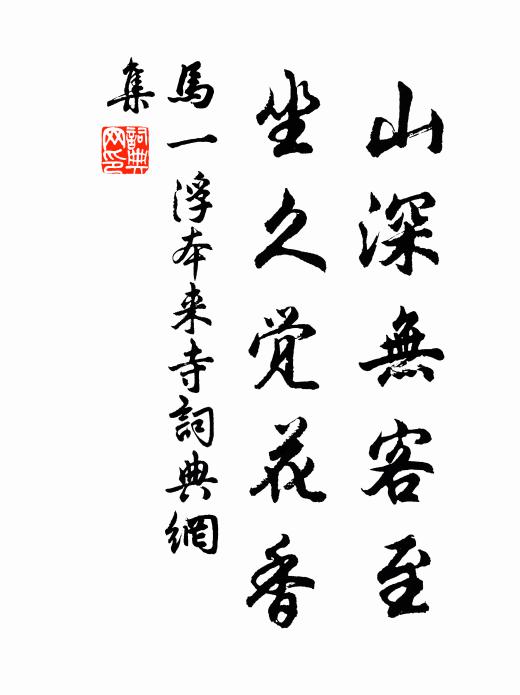 山深無客至
坐久覚花香
馬一浮本来寺詞典網
集
詞典
网印